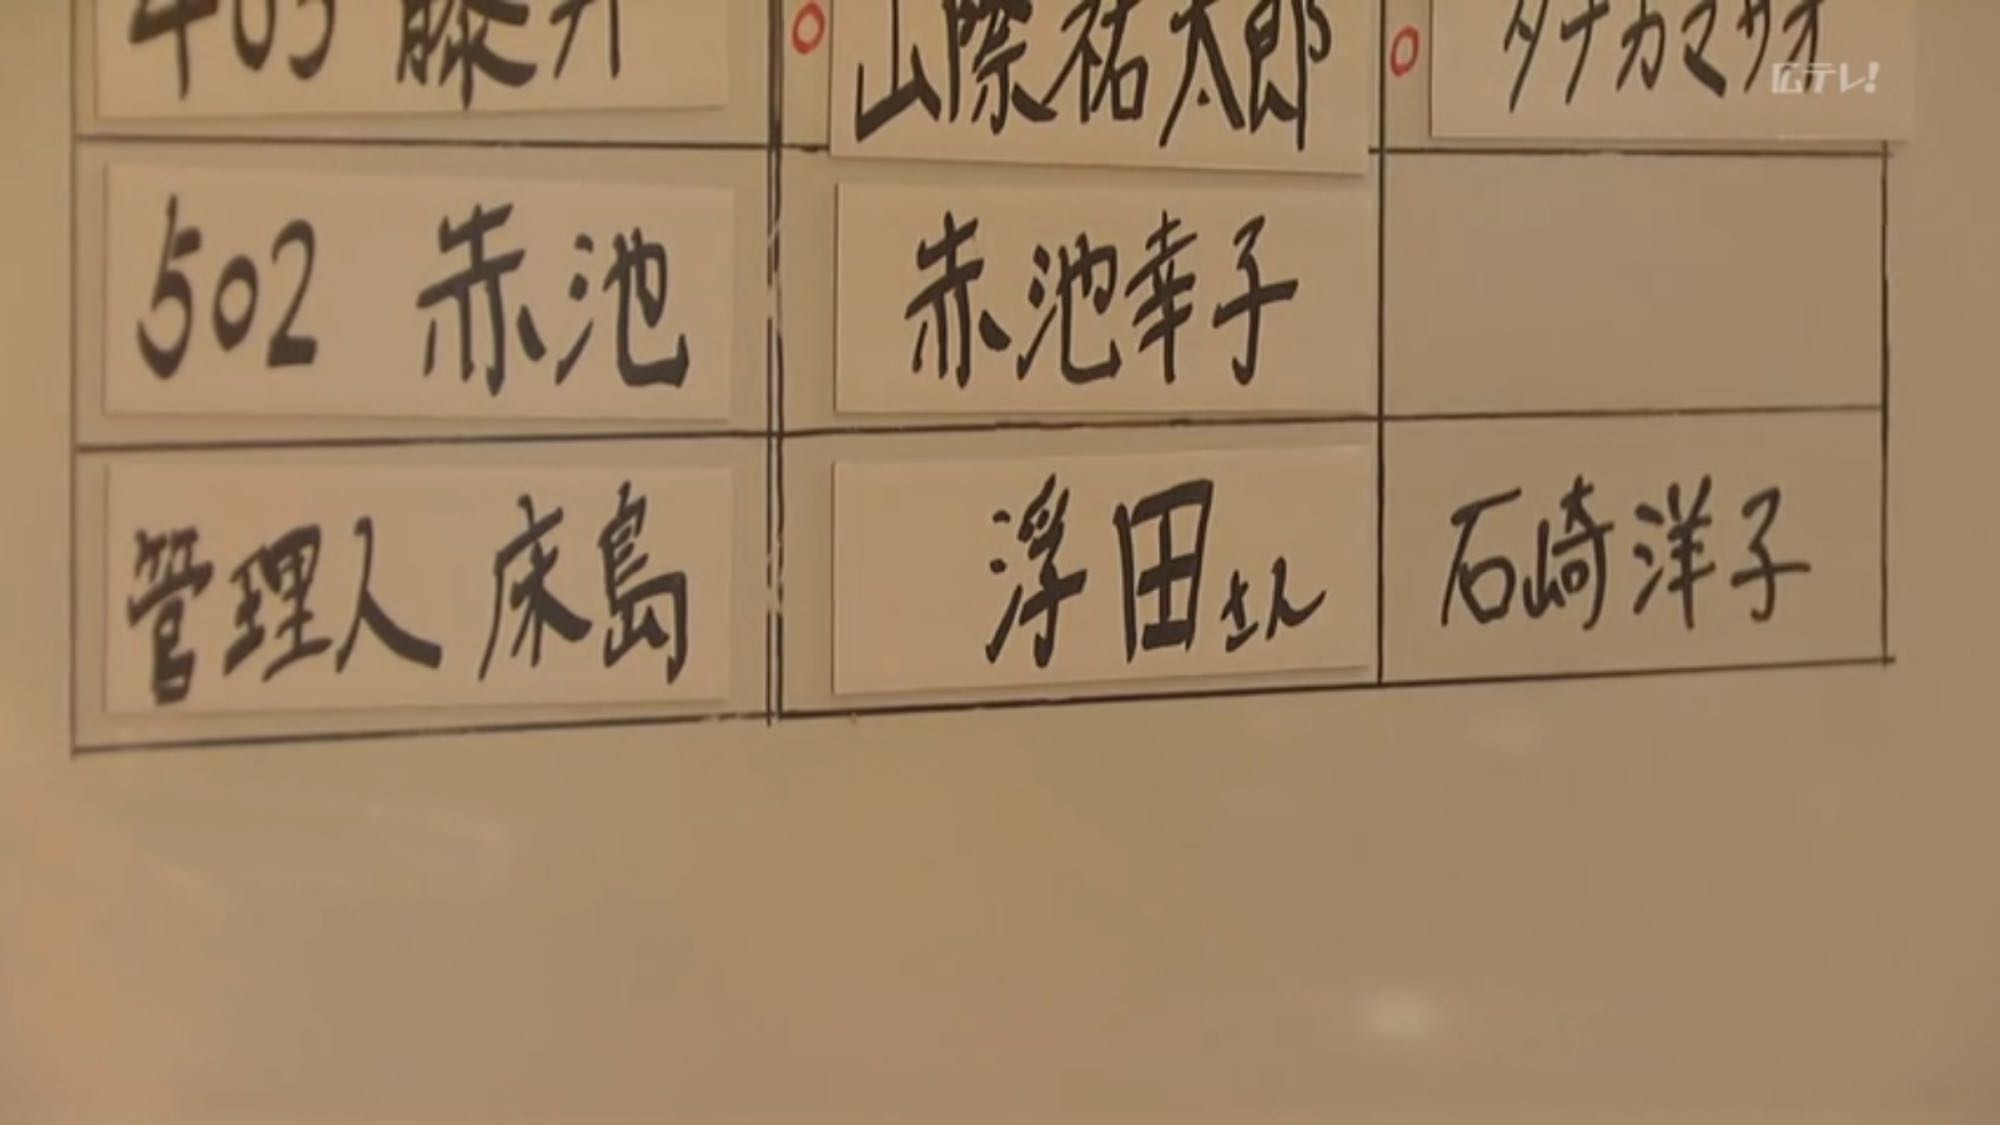 403 藤井
山際祐太郎
タナカマサオ
広テレ!
502 赤池
赤池幸子
管理人 床島
浮田さん
石崎洋子